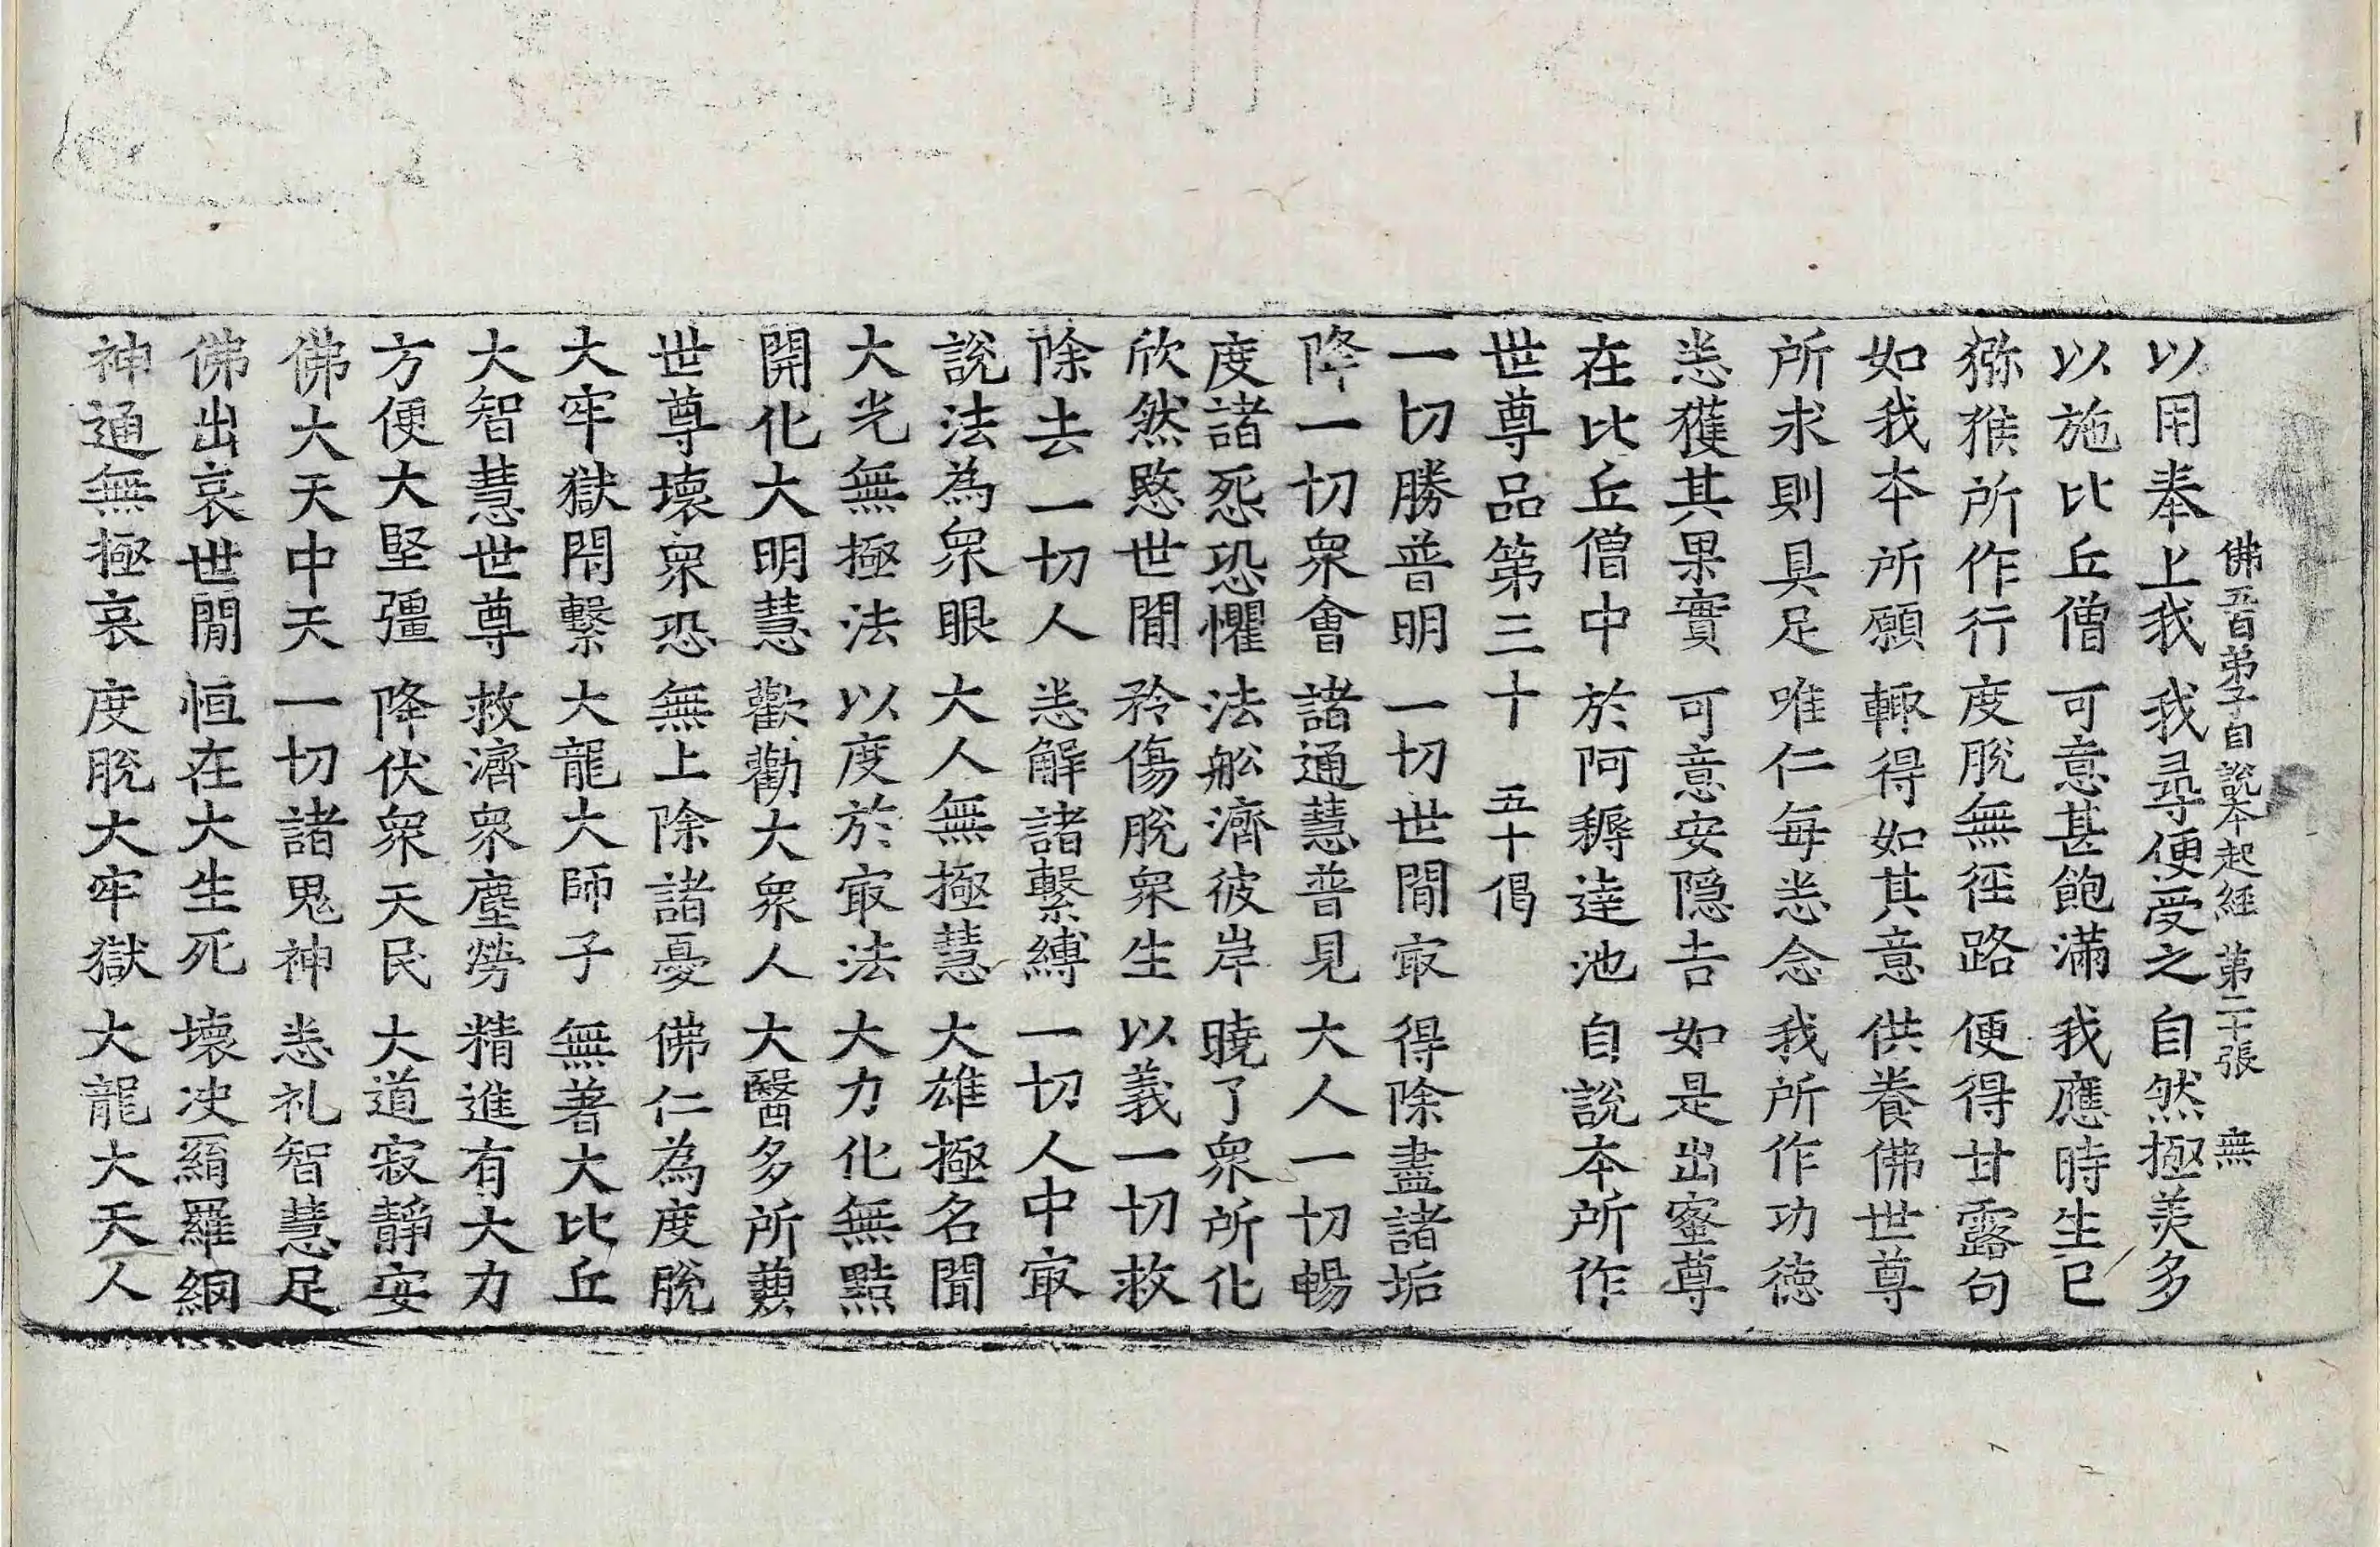 佛五百弟子自說本起經 第二十張 無
以用奉上我 我尋便受之 自然極羡多
以施比丘僧 可意甚飽滿 我應時生已
猕猴所作行 度脫無徑路 便得甘露句
如我本所願 輙得如其意 供養佛世尊
所求則具足 唯仁每恙念 我所作功德
恙獲其果實 可意安隱吉 如是出蜜尊
在比丘僧中 於阿耨達池 自說本所作
世尊品第三十 五十偈
一切勝普明 一切世間㝡 得除盡諸垢
降一切衆會 諸通慧普見 大人一切暢
度諸死恐懼 法舩濟彼岸 曉了衆所化
欣然愍世間 矜傷脫衆生 以義一切救
除去一切人 恙解諸繫縛 一切人中㝡
說法為衆眼 大人無極慧 大雄極名聞
大光無極法 以度於㝡法 大力化無點
開化大明慧 歡勸大衆人 大醫多所
世尊壞衆恐 無上除諸憂 佛仁為度脫
大牢獄閇繫 大龍大師子 無著大比丘
大智慧世尊 救濟衆塵勞 精進有大力
方便大堅彊 降伏衆天民 大道寂靜安
佛大天中天 一切諸鬼神 恙礼智慧足
佛出哀世間 恒在大生死 壞决羂羅網
神通無極哀 度脫大牢獄 大龍大天人